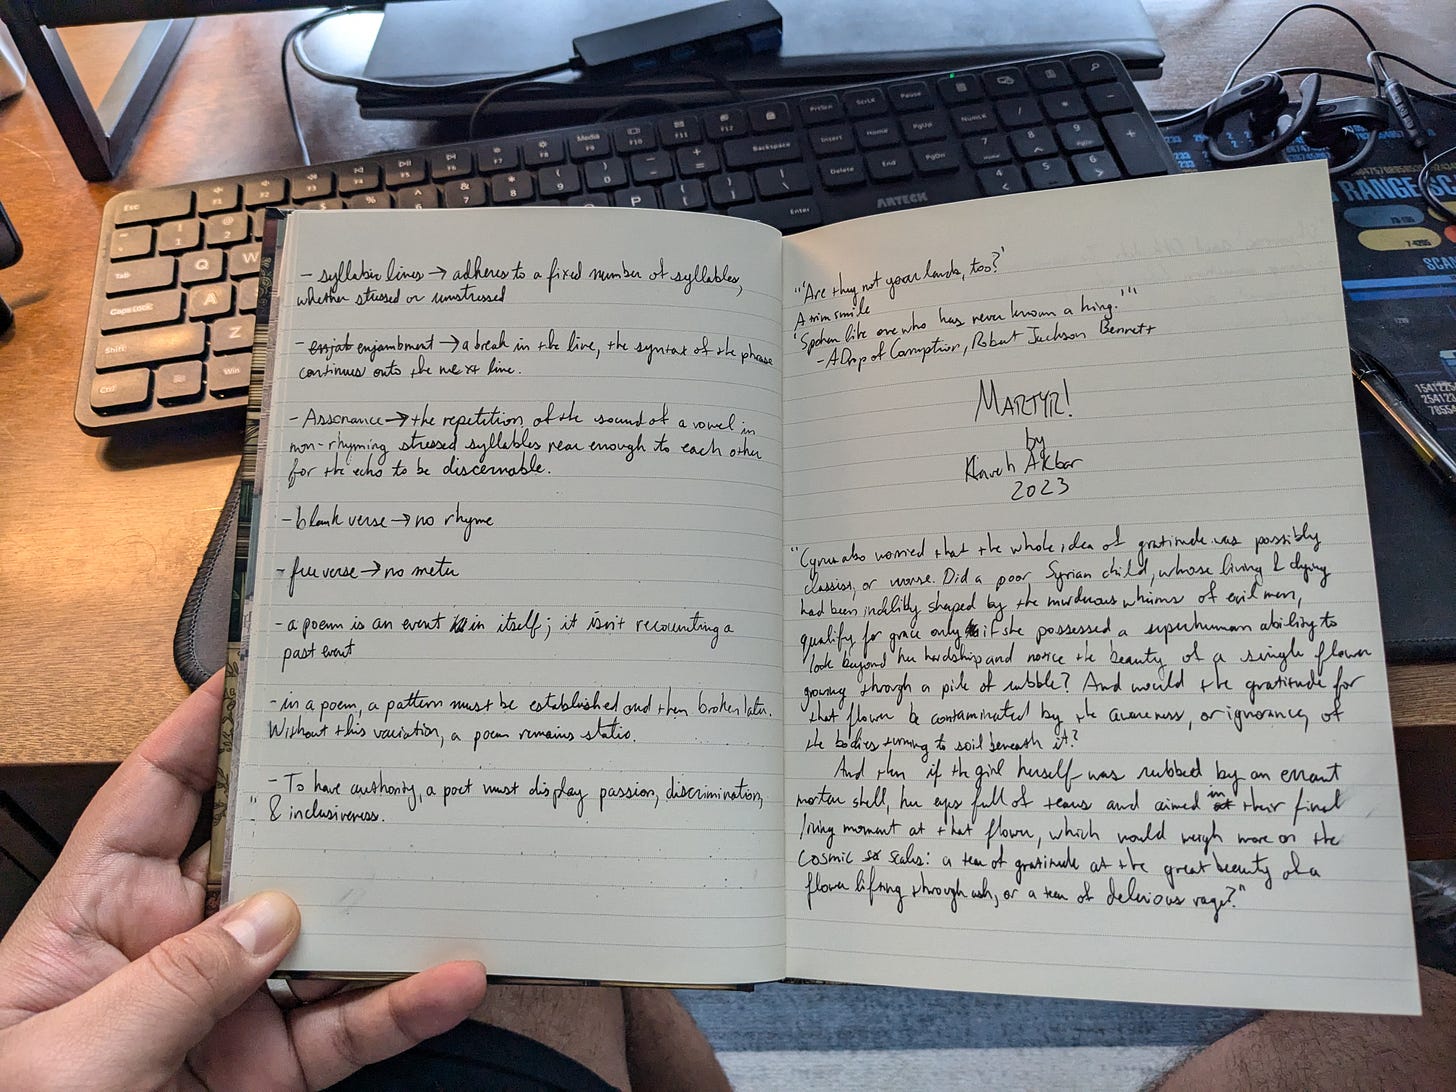 - syllabic lines → adheres to a fixed number of syllables,
whether stressed or unstressed
- enjambment → a break in the line, the syntax of the phrase
continues onto the next line.
- Assonance → the repetition of the sound of a vowel in
non-rhyming stressed syllables near enough to each other
for the echo to be discernable.
- blank verse → no rhyme
- free verse → no meter
- a poem is an event in itself; it isn't recounting a
past event
- in a poem, a pattern must be established and then broken later.
Without this variation, a poem remains static.
- To have authority, a poet must display passion, discrimination,
& inclusiveness.
"'Are they not your lands, too?'
A trim smile
'Spoken like one who has never known a king.'"
- A Drop of Corruption, Robert Jackson Bennett
MARTYR!
by
Kaveh Akbar
2023
"Cyrus also worried that the whole idea of gratitude was possibly
classist, or worse. Did a poor Syrian child, whose living & dying
had been indelibly shaped by the murderous whims of evil men,
qualify for grace only if she possessed a superhuman ability to
look beyond her hardship and notice the beauty of a single flower
growing through a pile of rubble? And would the gratitude for
that flower be contaminated by the awareness, or ignorance, of
the bodies turning to soil beneath it?
And then if the girl herself was rubbed by an errant
mortar shell, her eyes full of tears and aimed in their final
living moment at that flower, which would weigh more on the
cosmic scales: a tear of gratitude at the great beauty of a
flower lifting through ash, or a tear of delirious rage?"
Esc
Tab
Caps Lock
Shift
Ctrl
Win
Q
W
A
Z
Media
Backspace
PrtScn
ScrLK
Pause
Insert
Home
PgUp
NumLK
Delete
End
PgDn
Enter
ARTECK